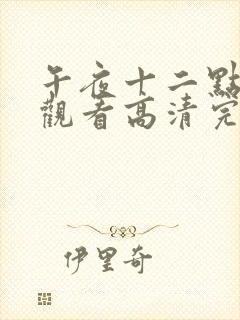 午夜十二點
觀看高清完
伊里奇